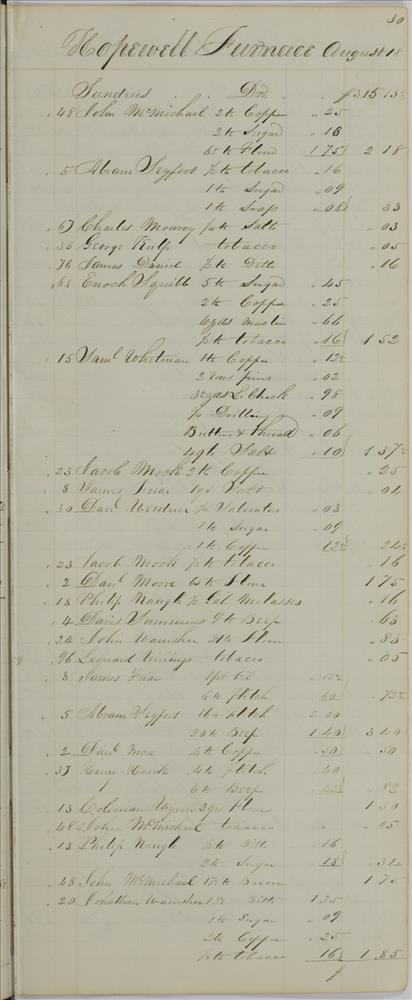 30
Hopewell Furnace August 18
Sundries Drs. 315 13
48 John McMichael 2 lb Coffee 25
2 lb Sugar 18
65 lb Flour 1 75 2 18
5 Abram Seyfert ½ lb tobacco 16
1 lb Sugar 09
1 lb Soap 08 33
67 Charles Mowrey Salts 03
33 George Kulp tobacco 05
76 James Daniel ½ lb Ditto 16
Enoch Squibb 5 lb Sugar 45
2 lb Coffee 25
6 yds muslin 66
½ lb tobacco 16 1 52
15 Saml Whitman 1 lb Coffee 12½
2 rows pins 02
yds L. Check 98
¾ Drilling 09
Buttons & thread 06
Salt 10 1 37½
23 Jacob Mook 2 lb Coffee 25
8 James Friar 1 qt Salt 04
30 Danl Weidner Saleratus 03
1 lb Sugar 09
1 lb Coffee 12½ 24½
23 Jacob Mook ½ lb tobacco 16
2 Danl Moore 65 lb Flour 1 75
18 Philip Naugle ½ Gal Molasses 16
4 Davis Summons 9 lb Beef 63
24 John Wamsher 31 lb Flour 83
96 Leonard tobacco 05
8 James Friar 1 pt Oil 12½
6 lb flitch 60 72½
5 Abram Seyfert lb flitch 2 00
20 lb Beef 1 40 3 40
2 Danl More 4 lb Coffee 50 50
37 Henry Houck 4 lb flitch 40
6 lb Beef 42 82
13 Coleman 2 qrs Flour 1 50
48 John McMichael tobacco 05
18 Philip Naugle ½ lb Ditto 16
2 lb Sugar 18 34
48 John McMichael lb Bacon 1 75
20 Jonathan Wamsher Ditto 1 35
1 lb Sugar 09
2 lb Coffee 25
½ lb tobacco 16 1 85